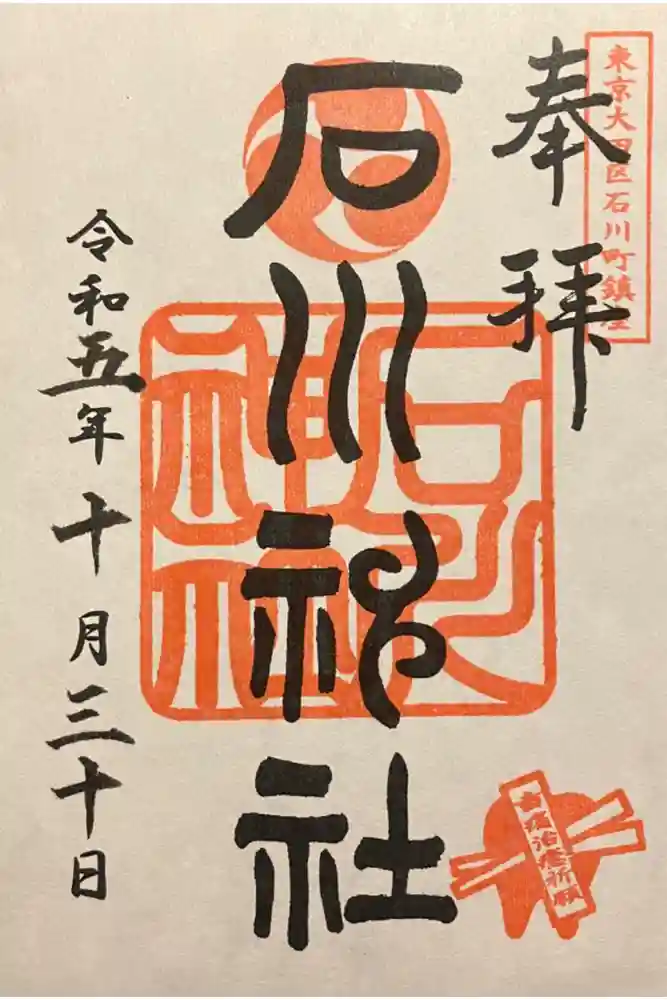 東京大田区石川町鎮座
奉拝
石川神社
石川神社
令和五年十月三十日
歯痛治癒祈願